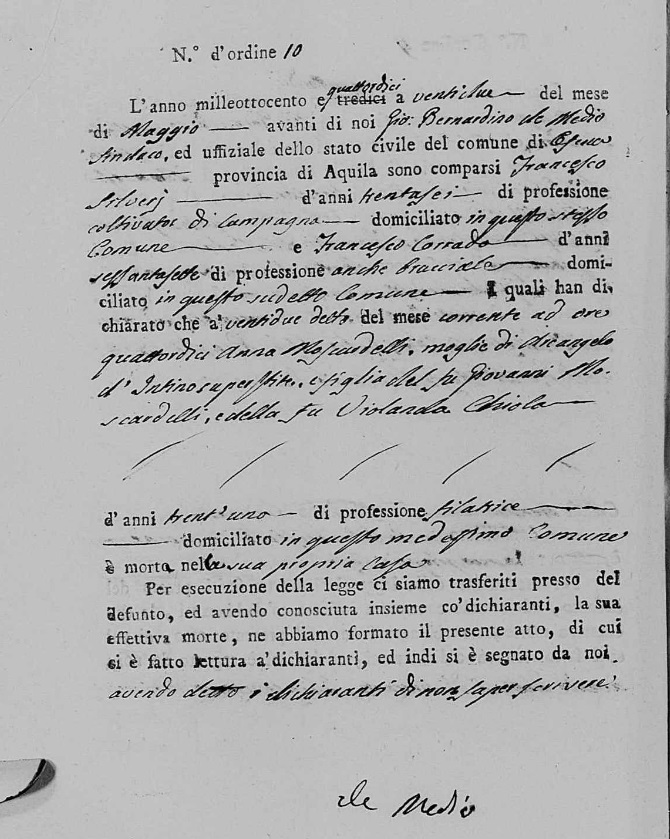 N.° d'ordine 10
quattordici
L'anno milleottocento e tredici a ventidue del mese
di Maggio avanti di noi Gio: Bernardino de Medio
Sindaco, ed uffiziale dello stato civile del comune di
provincia di Aquila sono comparsi Francesco
Silverj d'anni trentasei di professione
coltivator di campagna domiciliato in questo stesso
Comune e Francesco Corrado d'anni
sessantasette di professione anche bracciale domi-
ciliato in questo sudetto Comune I quali han di-
chiarato che a' ventidue detto del mese corrente ad ore
quattordici Anna Moscardelli, moglie di Arcangelo
d'Intino superstite, e figlia del fu Giovanni Mo-
scardelli, e della fu Violanda Chiola
d'anni trent'uno di professione filatrice
domiciliato in questo medessimo Comune
è morta nella sua propria casa
Per esecuzione della legge ci siamo trasferiti presso del
defunto, ed avendo conosciuta insieme co'dichiaranti, la sua
effettiva morte, ne abbiamo formato il presente atto, di cui
si è fatto lettura a'dichiaranti, ed indi si è segnato da noi
avendo detto i dichiaranti di non saper scrivere.
de Medio